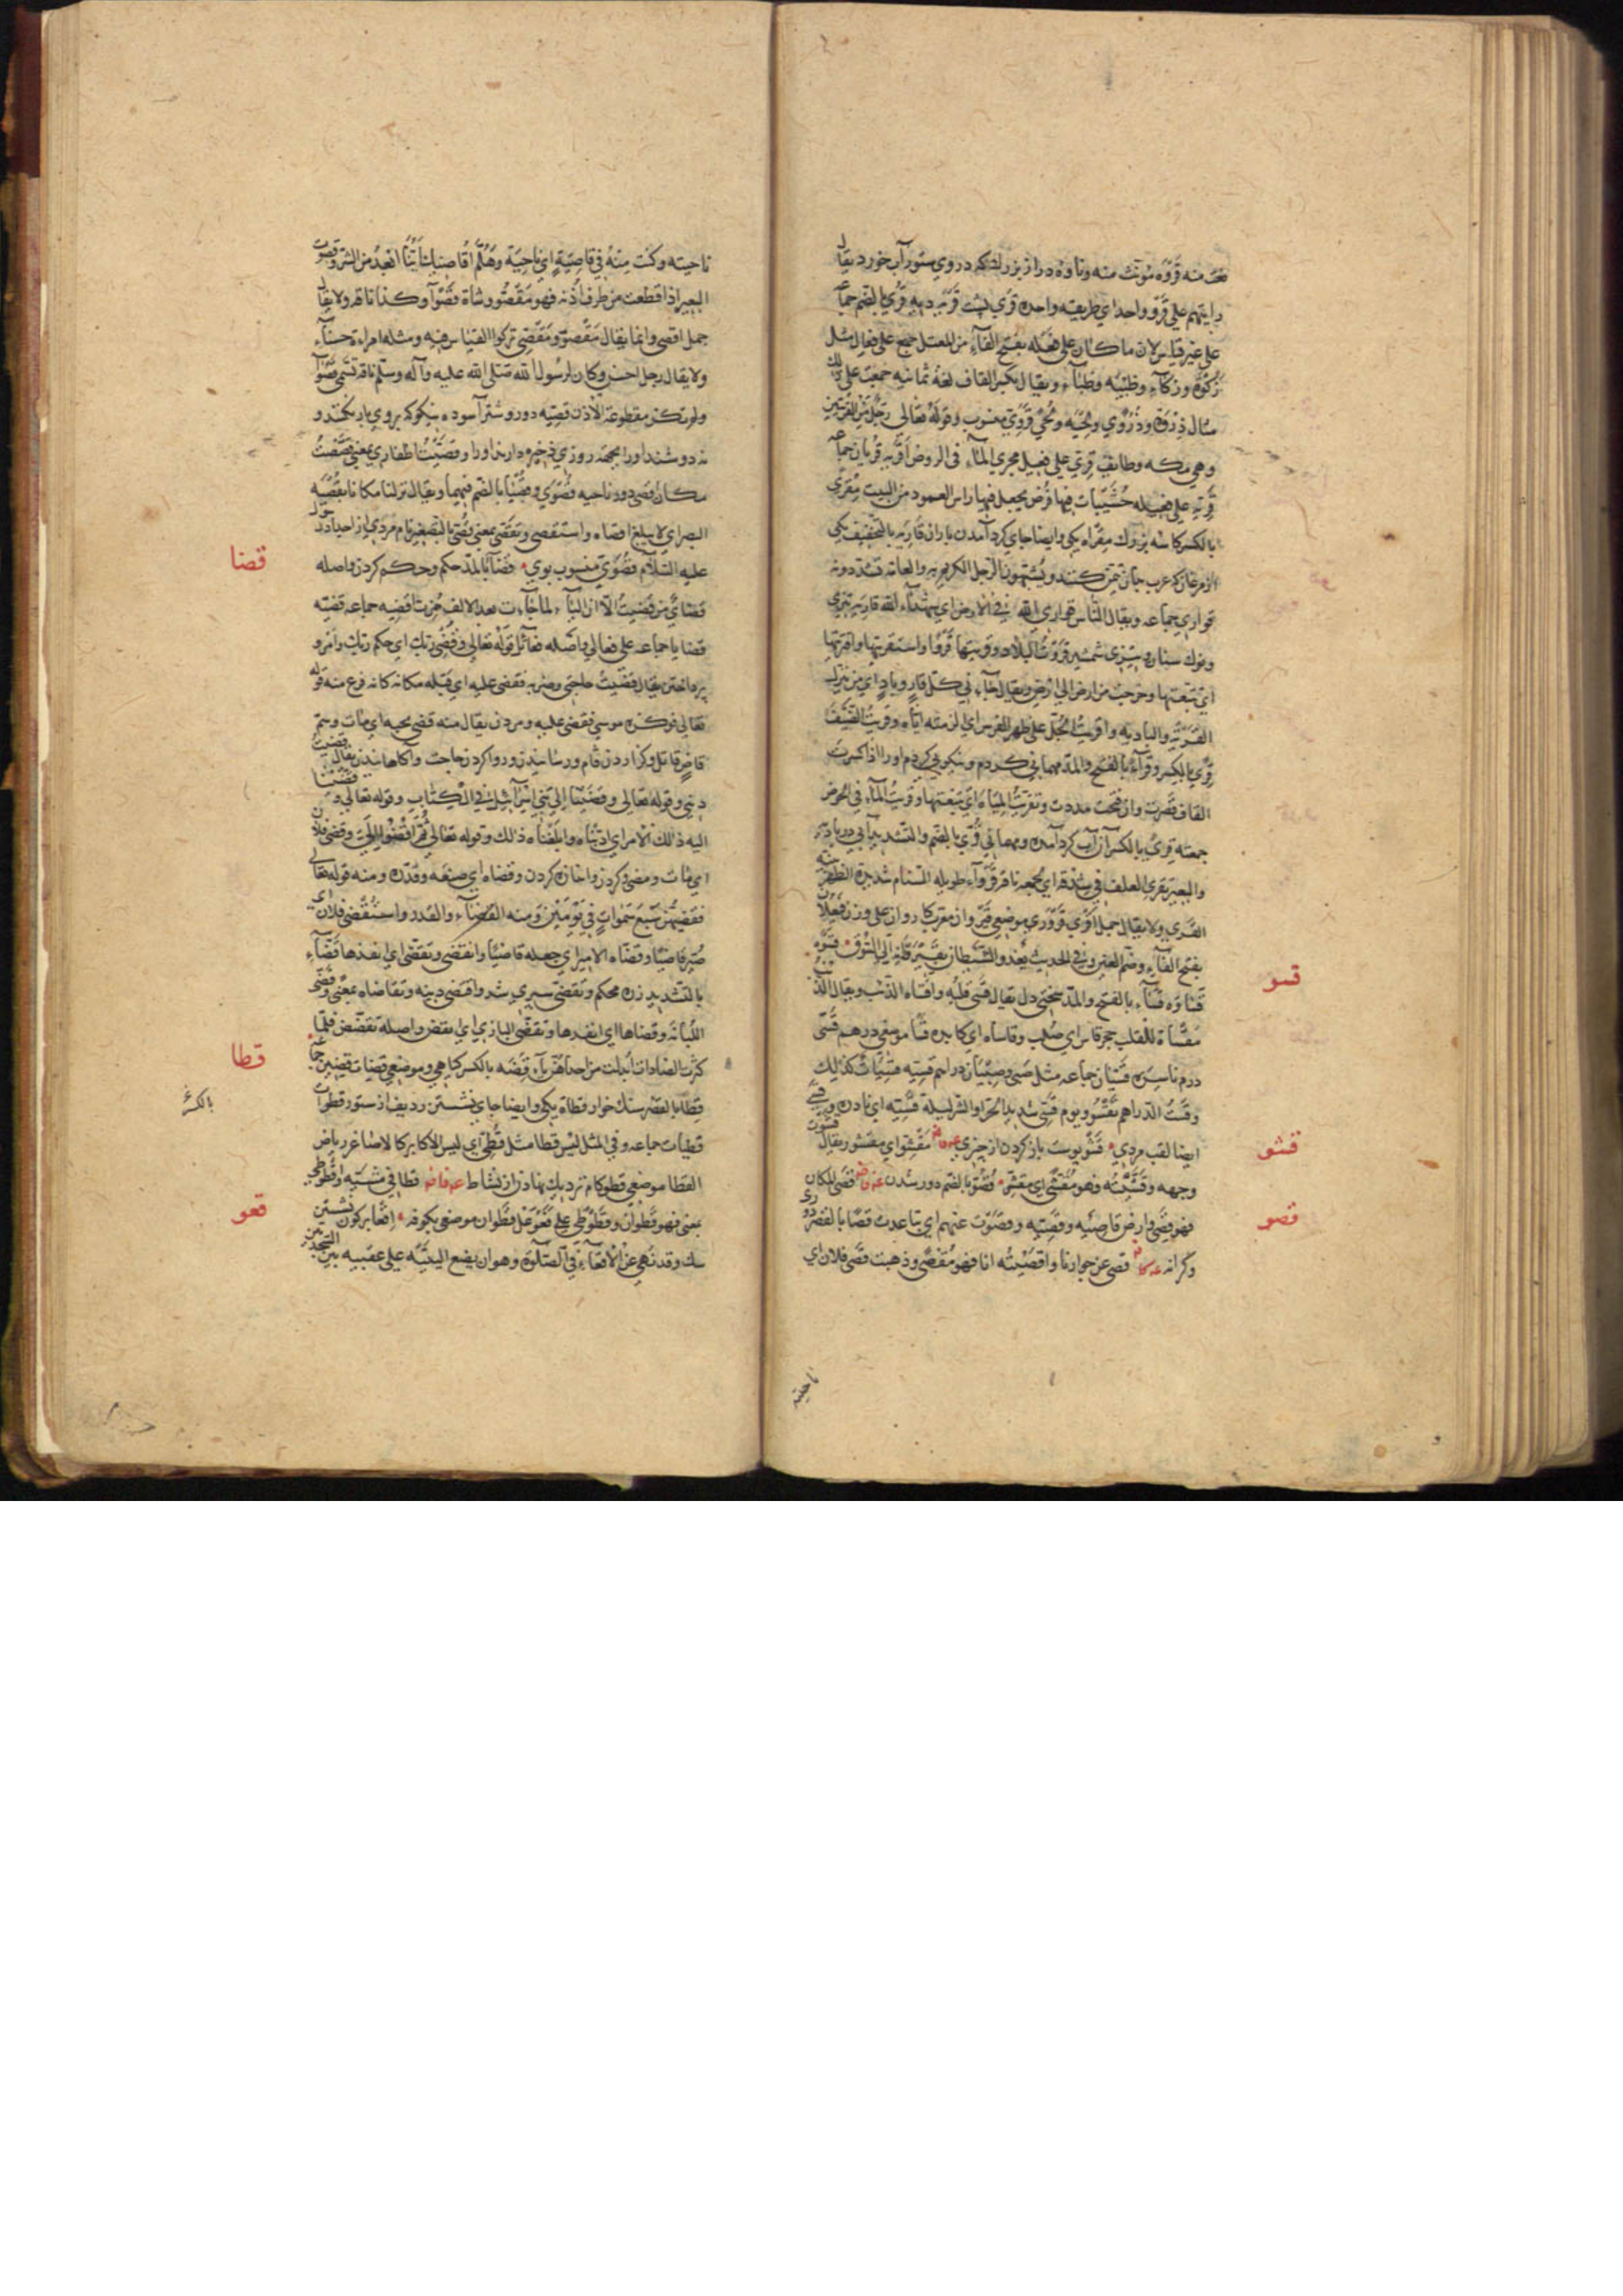 نعت منه قروه مؤنث منه وناوه دراز بزرك كه دروي ستور آب خورد يقال
رايتهم على قرو واحد اي طريقه واحده قرى پشت قريه ديه قرى بالضم جماعه
على غير قياس لان ما كان على فعله بفتح الفآء من المعتل جمع على فعال مثل
ركوة وركآء وظبيه وظبآء ويقال بكسر القاف لغة يمانيه جمعت على ذلك
مثال ذروة وذرى ولحيه ولحى قروي منسوب وقوله تعالى رجل من القريتين
وهي مكه وطائف قري على فعيل مجرى المآء في الروض اقريه قريان جماعه
قريه على فعيله خشيبات فيها فرض يجعل فيها راس العمود من البيت مقرى
بالكسر كاسه بزرك مقراه يكى وايضا جاي كرد آمدن باران قاريه بالتخفيف يكى
از مرغان كه عرب بدان تيمن كنند ويشبهون الرجل الكريم به والعامه تشدده
قواري جماعه ويقال الناس قواري الله في الارض اي شهدآء الله قاريه تيزي
ونوك سنان وتيزى شمشير قروت البلاد وقريتها قروا واستقريتها واقتريتها
اي تتبعتها وخرجت من ارض الى ارض ويقال جآء ني كل قار وباد اي من نزل
القريه والباديه واقريت الجل على ظهر الفرس اي الزمته اياه وقريت الضيف
قرى بالكسر وقرآء بالفتح والمد مهماني كردم ونيكوي كردم او را اذا كسرت
القاف قصرت وان فتحت مددت وتقريت المياه اي تتبعتها وقريت المآء في الحوض
جمعته قرى بالكسر آن آب كرد آمده ومهماني
والبعير يقرى العلف في شدقه اي يجمعه ناقه قروآء طويله السنام شديدة الظهر بينه
القرى ولا يقال جمل اقرى قرورى موضعى قيروان معرب كاروان على وزن فيعلان
بفتح الفآء وضم العين وفي الحديث يغدو الشيطان بقيروانه الى السوق قسوه
قساوه قسآء بالفتح والمد سختى دل يقال قسى قلبه واقساه الذنب ويقال الذنب
مقساة للقلب حجر قاس اي صلب وقاساه اي كابده قسا موضعى درهم قسى
درم ناسره قسيان جماعه مثل صبى وصبيان دراهم قسيه قسيات كذلك
وقست الدراهم تقسو ويوم قسى شديد الحر او الشر ليلة قسيه اي بارده وقسى
ايضا لقب مردي قشو پوست باز كردن از چيزي مقشو اي مقشور يقال قشوت
وجهه وقشيته فهو مقشى اي مقشر قصو بالضم دور شدن قصى المكان
فهو قصى وارض قاصيه وقصيه وقصوت عنهم اي تباعدت قصا بالقصر دوري
وكرانه قصى عن جوارنا واقصيته انا فهو مقصى وذهبت قصى فلان اي
ناحيته
قسو
قشو
قصو
ناحيته وكنت منه في قاصيته اي ناحيته وهلم اقاصك اينا ابعد من الشر وقصوت
البعير اذا قطعت من طرف اذنه فهو مقصو وشاة قصوآ وكذا ناقه ولا يقال
جمل اقصى وانما يقال مقصو ومقصى تركوا القياس فيه ومثله امراءة حسنآء
ولا يقال رجل احسن وكان لرسول الله صلى الله عليه وآله وسلم ناقه تسمى قصوآ
ولم تكن مقطوعة الاذن قصيه دور وشتر آسوده نيكو كه بروي بار نكنند و
نه دوشند او را بجهة روزى ذخيره دارند او را وقصيت اظفاري بمعنى قصصت
مكان قصى دور ناحيه قصوى وقصيا بالضم فيهما ويقال نزلنا مكانا يقصيه
البصر اي لا يبلغ اقصاه واستقصى وتقصى بمعنى قصى بالتصغير نام مردي از اجداد رسول
عليه السلام قصوى منسوب بوي قضآء بالمد حكم وحكم كردن واصله
قضاي من قضيت الا ان اليآء لما جآءت بعد الالف همزت اقضيه جماعه قضيه
قضايا جماعه على فعالى واصله فعائل قوله تعالى وقضى ربك اي حكم ربك وامر و
پرداختن يقال قضيت حاجتى وضربه فقضى عليه اي قتله مكانه كانه فرغ منه قوله
تعالى فوكزه موسى فقضى عليه ومردن يقال منه قضى نحبه اي مات وسم
قاض قاتل وكزاردن وام ورسانيدن وروا كردن حاجت وآكاهانيدن يقال قضيت
ديني وقوله تعالى وقضينا الى بني اسرآئيل في الكتاب وقوله تعالى وقضينا
اليه ذالك الامر اي ادناه وابلغناه ذلك وقوله تعالى ثم اقضوا الي وقضى فلان
اي مات ومضى كردن واندازه كردن وقضاه اي صنعه وقدره ومنه قوله تعالى
فقضيهن سبع سموات في يومين ومنه القضآء والقدر واستقضى فلان اي
صير قاضيا وقضاه الامير اي جعله قاضيا وانقضى وتقضى اي نفذها قضآء
بالتشديد زره محكم وتقضى سپري شد واقتضى دينه وتقاضاه بمعنى وقضى
اللبانه وقضاها اي انفدها وتقضى البازي اي انقض واصله تقضض فلما
كثرت الضادات ابدلت من احداهن يآء قضه بالكسر كياهي وموضعى قضات قضين جماعه
قطا بالقصر سنك خوار قطاة يكى وايضا جاي نشستن رديف از ستور قطوات
قطيات جماعه وفي المثل ليس قطا مثل قطى اي ليس الاكابر كالاصاغر رياض
القطا موضعى قطو كام نزديك نهادن از نشاط قطا في مشيه واقطوطى
بمعنى فهو قطوان وقطوطى على فعوعل قطوان موضعى بكوفه اقعآء بركون نشستن
سك وقد نهي عن الاقعآء في الصلوة وهو ان يضع اليتيه على عقبيه بين السجدتين
قضا
قطا
بالكسر
قعو